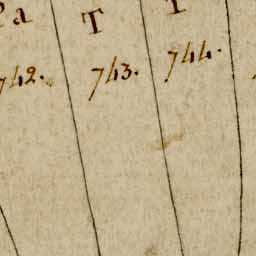 a T T
742. 743. 744.